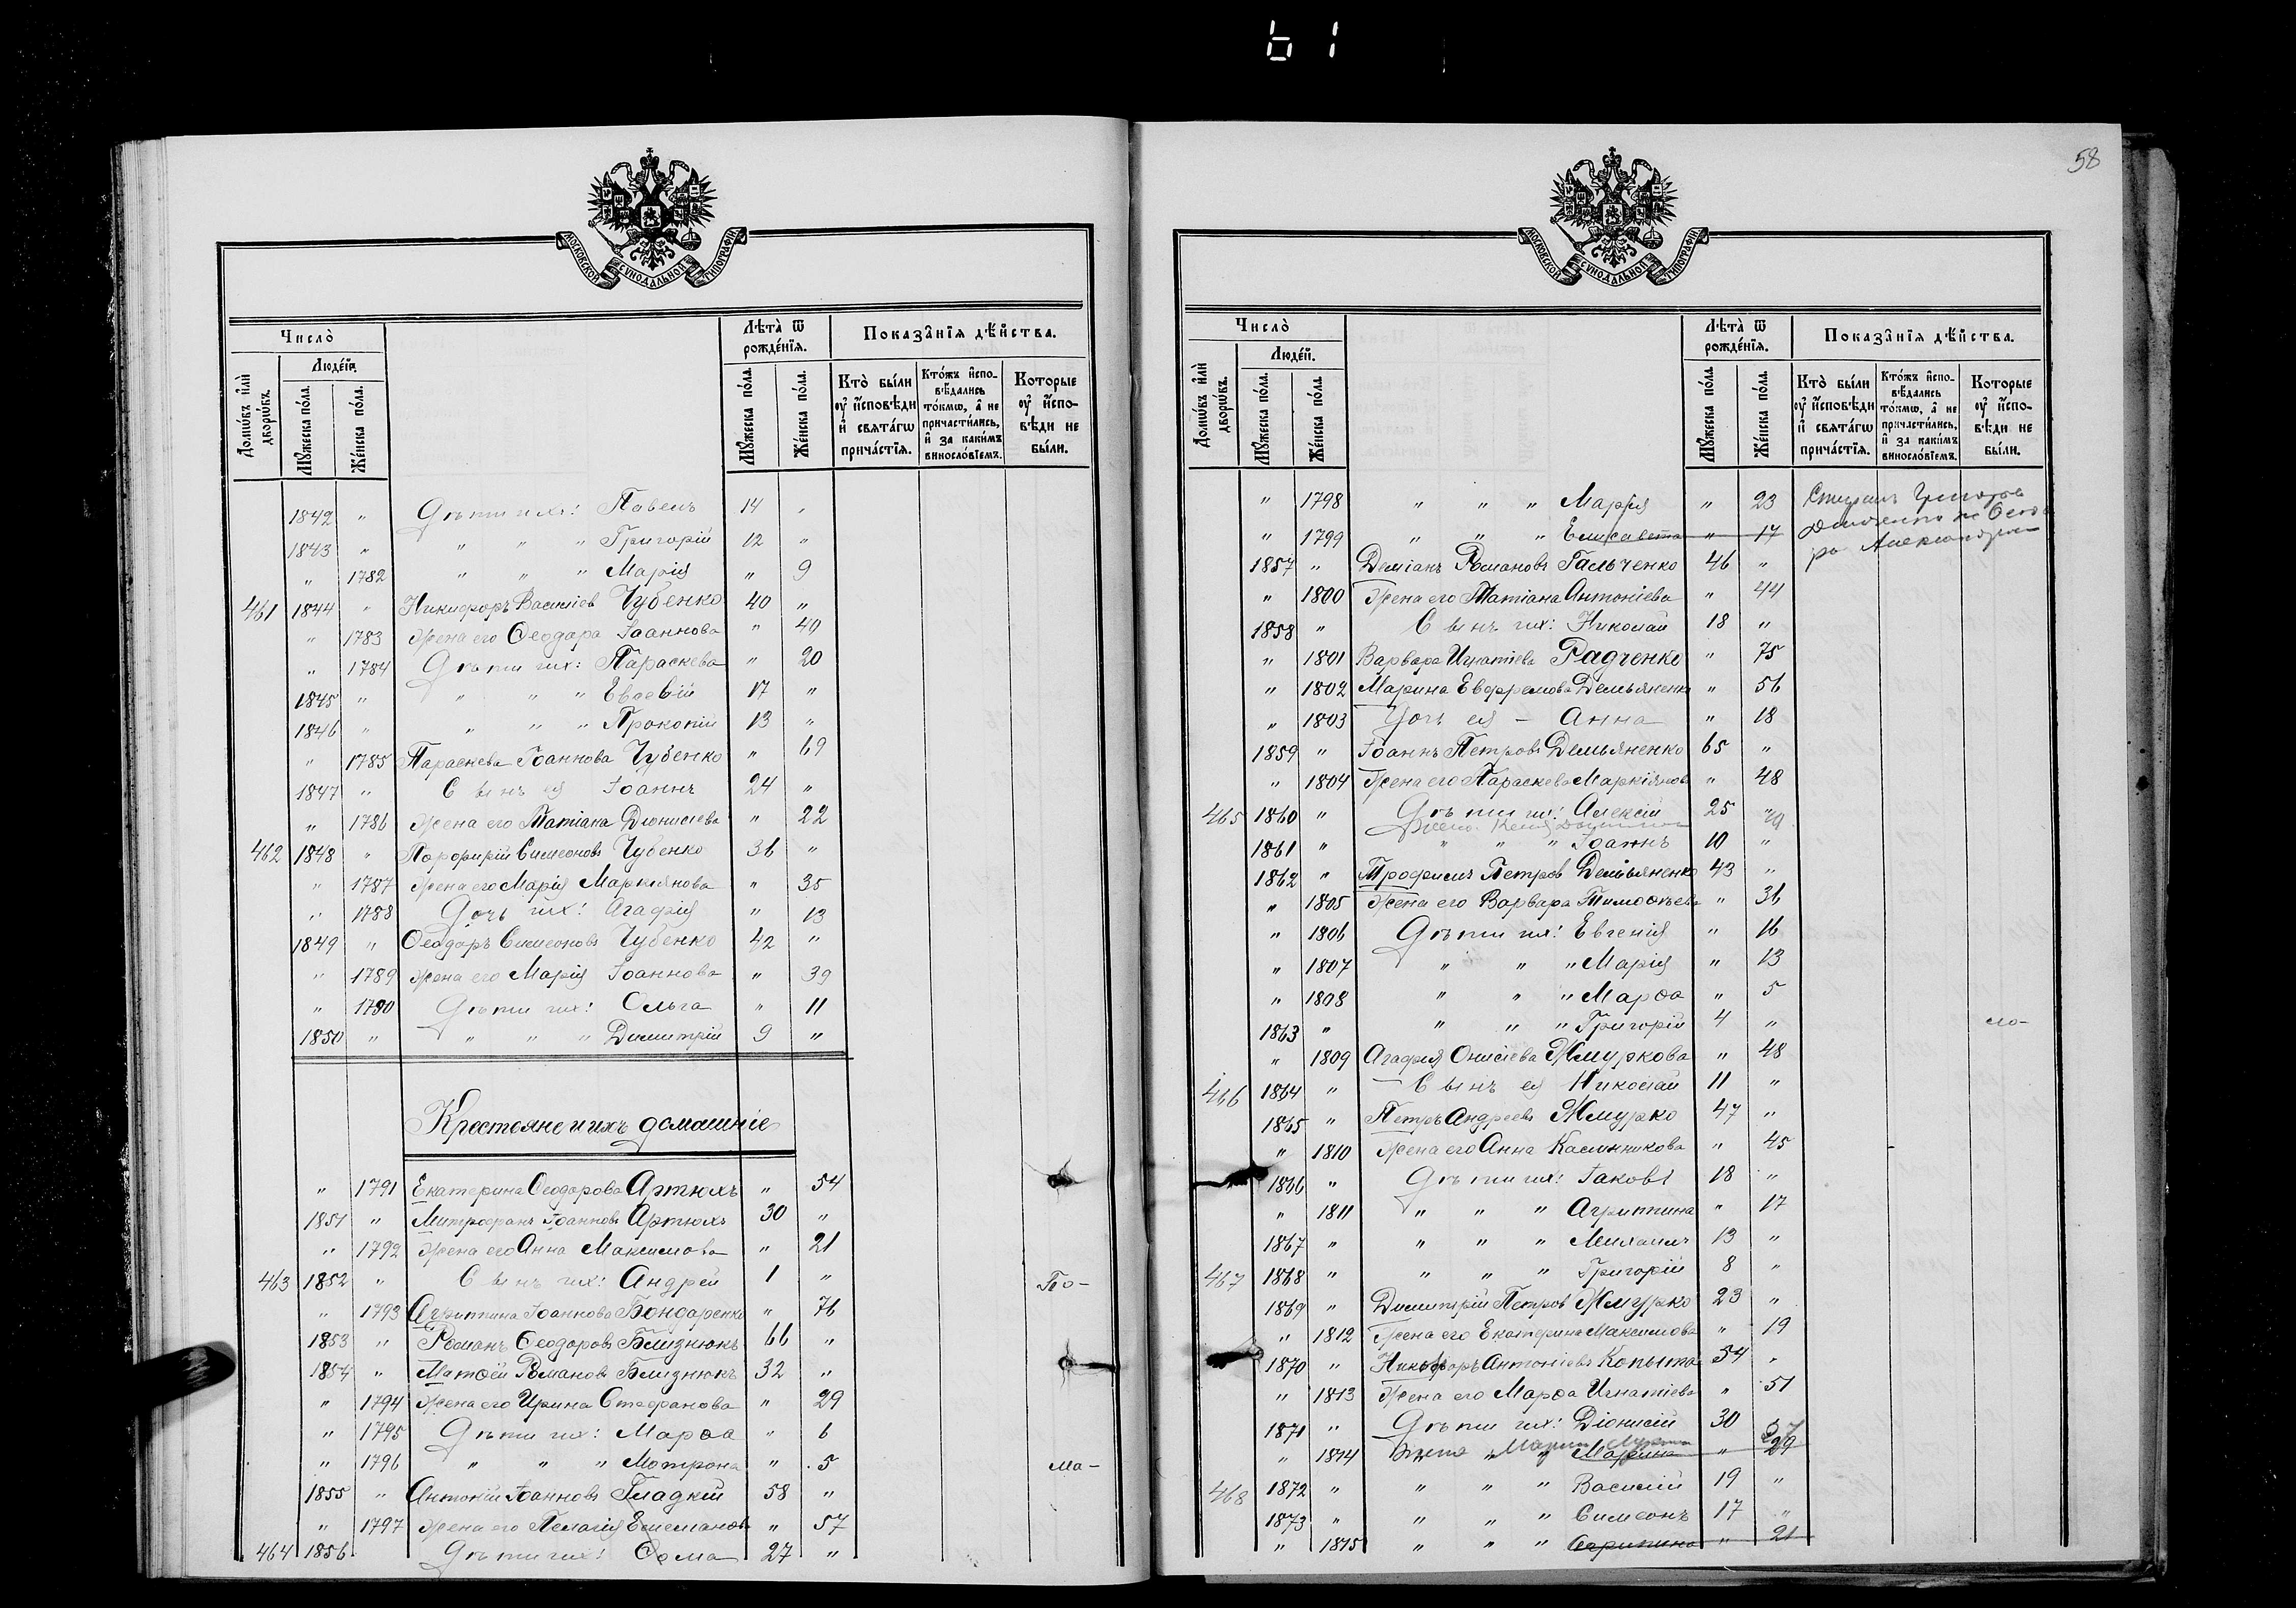 61
МОСКОВСКОЙ СѴНОДАЛЬНОЙ ТИПОГРАФІИ
Число̀
Люде́й.
Домѡ́въ и҆лѝ дворѡ́въ.
Мꙋ́жеска по́ла.
Же́нска по́ла.
Лѣ́та ѿ рожде́нїѧ.
Мꙋ́жеска по́ла.
Же́нска по́ла.
Показа̑нїѧ дѣ́йства.
Кто̀ бы́ли ᲂу҆ и҆сповѣди и҆ свѧта́гѡ прича́стїѧ.
Кто́жъ и҆спо-вѣ́дались то́кмѡ, а҆ не причасти́лись, и҆ за каки́мъ виносло́вїемъ.
Которые ᲂу҆ и҆спо-вѣди не бы́ли.
1842 " Дѣти ихъ: Павелъ 14 "
1843 " " " " Григорій 12 "
" 1782 " " " Марія " 9
461 1844 " Никифоръ Василіев Чубенко 40 "
" 1783 Жена его Ѳеодора Іоаннова " 40
" 1784 Дѣти ихъ: Параскева " 20
1845 " " " " Евсевій 17 "
1846 " " " " Прокопій 13 "
" 1785 Параскева Іоаннова Чубенко " 69
1847 " Сынъ ея Іоаннъ 24 "
" 1786 Жена его Татіана Діонисіева " 22
462 1848 " Порфирій Симеоновъ Чубенко 36 "
" 1787 Жена его Марія Маркіянова " 35
" 1788 Дочь ихъ: Агафія " 13
1849 " Ѳеодоръ Симеоновъ Чубенко 42 "
" 1789 Жена его Марія Іоаннова " 39
" 1790 Дѣти ихъ: Ольга " 11
1850 " " " " Димитрій 9 "
Крестояне и ихъ домашніе
" 1791 Екатерина Ѳеодорова Артюхъ " 54
1851 " Митрофанъ Іоанновъ Артюхъ 30 "
" 1792 Жена его Анна Максимова " 21
463 1852 " Сынъ ихъ: Андрей 1 " По-
" 1793 Агриппина Іоаннова Бондаренко " 76
1853 " Романъ Ѳеодоровъ Близнюкъ 66 "
1854 " Матѳей Романовъ Близнюкъ 32 "
" 1794 Жена его Ирина Стефанова " 29
" 1795 Дѣти ихъ: Марѳа " 6
" 1796 " " " Мотрона " 5 ма-
1855 " Антоній Іоанновъ Гладкій 58 "
" 1797 Жена его Пелагія " 57
464 1856 Дѣти ихъ: Ѳома 27 "
58
МОСКОВСКОЙ СѴНОДАЛЬНОЙ ТИПОГРАФІИ
Число̀
Люде́й.
Домѡ́въ и҆лѝ дворѡ́въ.
Мꙋ́жеска по́ла.
Же́нска по́ла.
Лѣ́та ѿ рожде́нїѧ.
Мꙋ́жеска по́ла.
Же́нска по́ла.
Показа̑нїѧ дѣ́йства.
Кто̀ бы́ли ᲂу҆ и҆сповѣди и҆ свѧта́гѡ прича́стїѧ.
Кто́жъ и҆спо-вѣ́дались то́кмѡ, а҆ не причасти́лись, и҆ за каки́мъ виносло́вїемъ.
Которые ᲂу҆ и҆спо-вѣди не бы́ли.
" 1798 " " " Марія " 23
" 1799 " " " Елисавета " 17
1857 " Деміанъ Романовъ Гальченко 46 "
" 1800 Жена его Татіана Антоніева " 44
1858 " Сынъ ихъ: Николай 18 "
" 1801 Варвара Игнатіева Радченко " 75
" 1802 Марина Евфремова Демьяненко " 56
" 1803 Дочь ея - Анна " 18
1859 " Іоаннъ Петровъ Демьяненко 65 "
" 1804 Жена его Параскева Маркіянова " 48
465 1860 " Дѣти ихъ: Алексій 25 "
1861 " " " " Іоаннъ 10 "
1862 " Трофимъ Петров Демьяненко 43 "
" 1805 Жена его Варвара Тимоѳеева " 36
" 1806 Дѣти ихъ: Евгенія " 16
" 1807 " " " Марія " 13
" 1808 " " " Марѳа " 5
1863 " " " " Григорій 4 " ло-
" 1809 Агафія Онисіева Жмуркова " 48
466 1864 " Сынъ ея Николай 11 "
1865 " Петръ Андреевъ Жмурко 47 "
" 1810 Жена его Анна Калинникова " 45
1866 " Дѣти ихъ: Іаковъ 18 "
" 1811 " " " Агриппина " 17
1867 " " " " Михаилъ 13 "
467 1868 " " " " Григорій 8 "
1869 " Димитрій Петров Жмурко 23 "
" 1812 Жена его Екатерина Максимова " 19
1870 " Никифоръ Антоніевъ Копыта 54 "
" 1813 Жена его Марѳа Игнатіева " 51
1871 " Дѣти ихъ: Діонисій 30
" 1814 " Марина " 29
468 1872 " " " " Василій 19 "
1873 " " " " Симеонъ 17 "
" 1815 " " " " 21